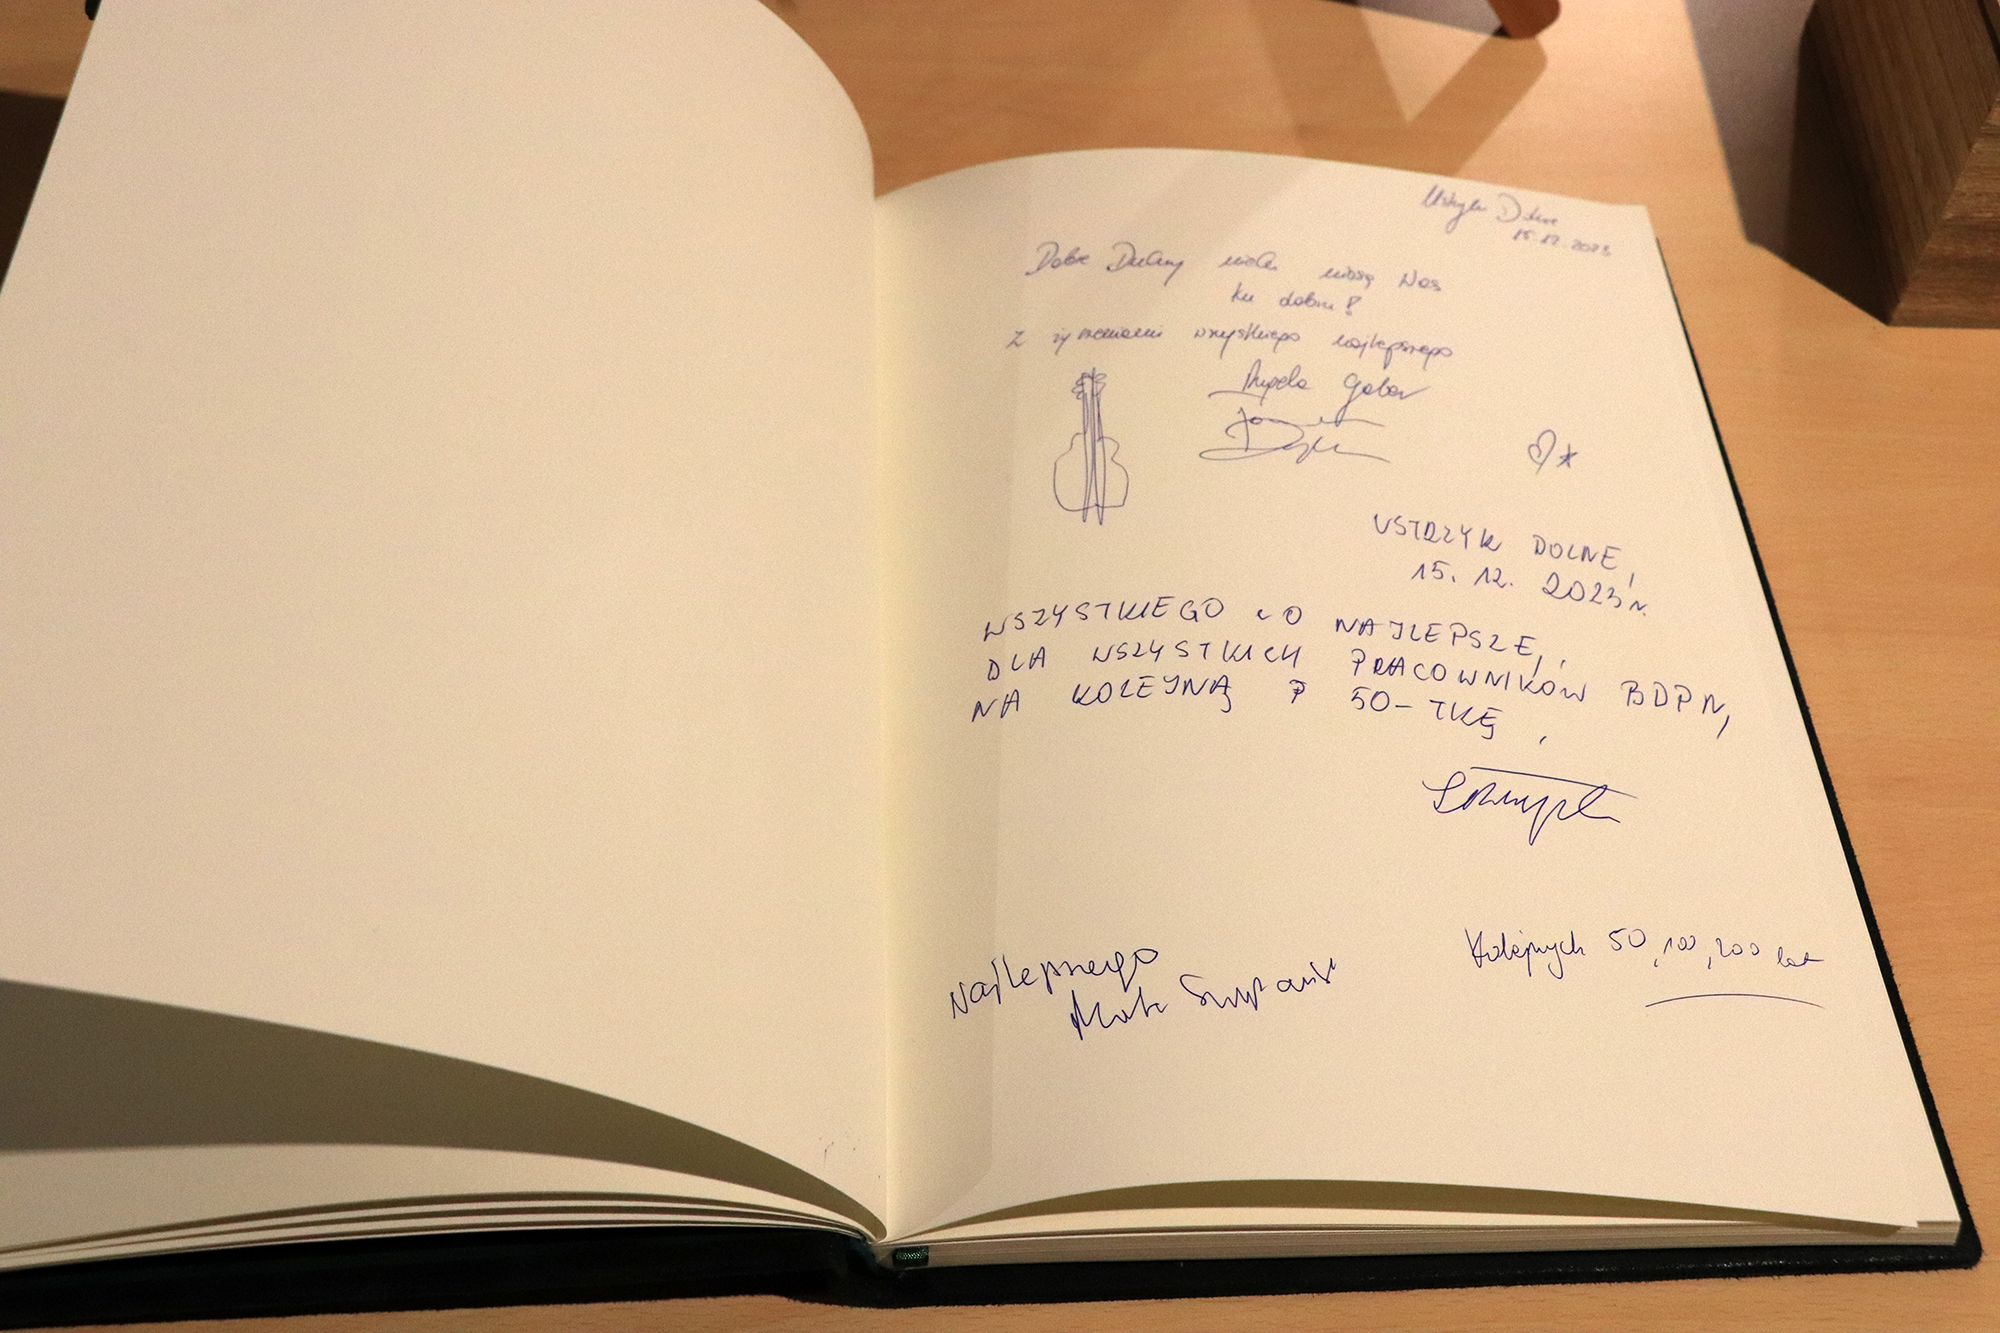 15.12.2023
Dobre Duchy niech niosą Nas
ku dobru!
Z życzeniami wszystkiego najlepszego
USTRZYK DOLNE,
15. 12. 2023 r.
WSZYSTKIEGO CO NAJLEPSZE,
DLA WSZYSTKICH PRACOWNIKÓW BDPN,
NA KOLEJNĄ 50-TKĘ,
Najlepszego
Kolejnych 50, 100, 200 lat